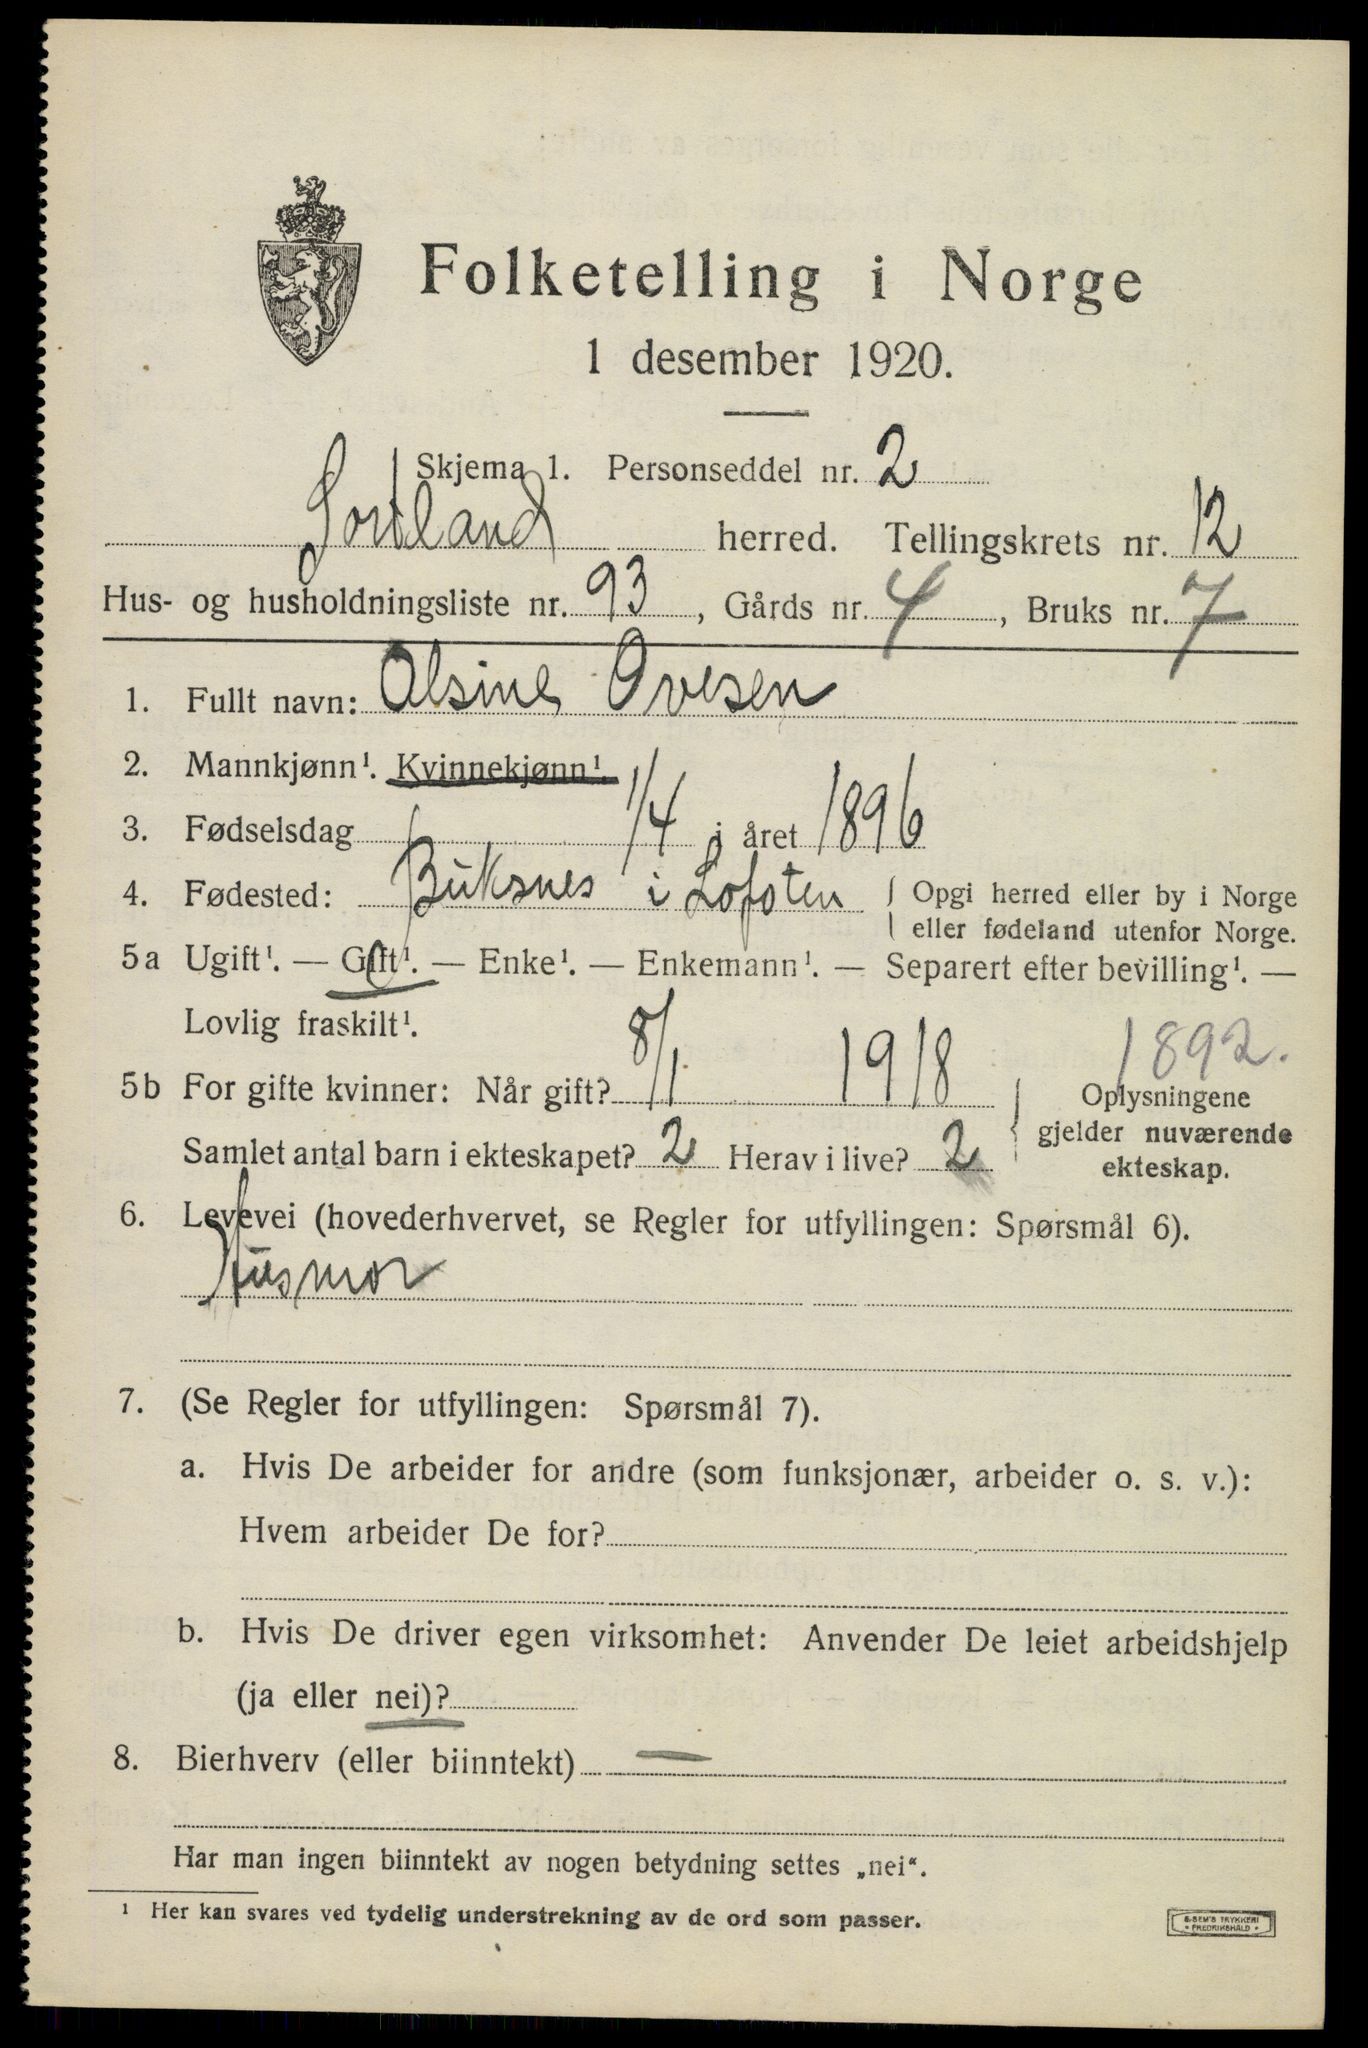 Folketelling i Norge
1 desember 1920.
Skjema 1. Personseddel nr. 2
Sortland herred. Tellingskrets nr. 12
Hus- og husholdningsliste nr. 93, Gårds nr. 4, Bruks nr. 7
1. Fullt navn: Olsine Ovesen
2. Mannkjønn¹. Kvinnekjønn¹.
3. Fødselsdag 1/4 i året 1896
4. Fødested: Buksnes i Lofoten { Opgi herred eller by i Norge
eller fødeland utenfor Norge.
5a Ugift¹. — Gift¹. — Enke¹. — Enkemann¹. — Separert efter bevilling¹. —
Lovlig fraskilt¹.
1892.
5b For gifte kvinner: Når gift? 8/1 1918 } Oplysningene
gjelder nuværende
Samlet antal barn i ekteskapet? 2 Herav i live? 2 ekteskap.
6. Levevei (hovederhvervet, se Regler for utfyllingen: Spørsmål 6).
Husmor
7. (Se Regler for utfyllingen: Spørsmål 7).
a. Hvis De arbeider for andre (som funksjonær, arbeider o. s. v.):
Hvem arbeider De for?
b. Hvis De driver egen virksomhet: Anvender De leiet arbeidshjelp
(ja eller nei)?
8. Bierhverv (eller biinntekt) —
Har man ingen biinntekt av nogen betydning settes „nei“.
¹ Her kan svares ved tydelig understrekning av de ord som passer.
E. SEM'S TRYKKERI
• FREDRIKSHALD •